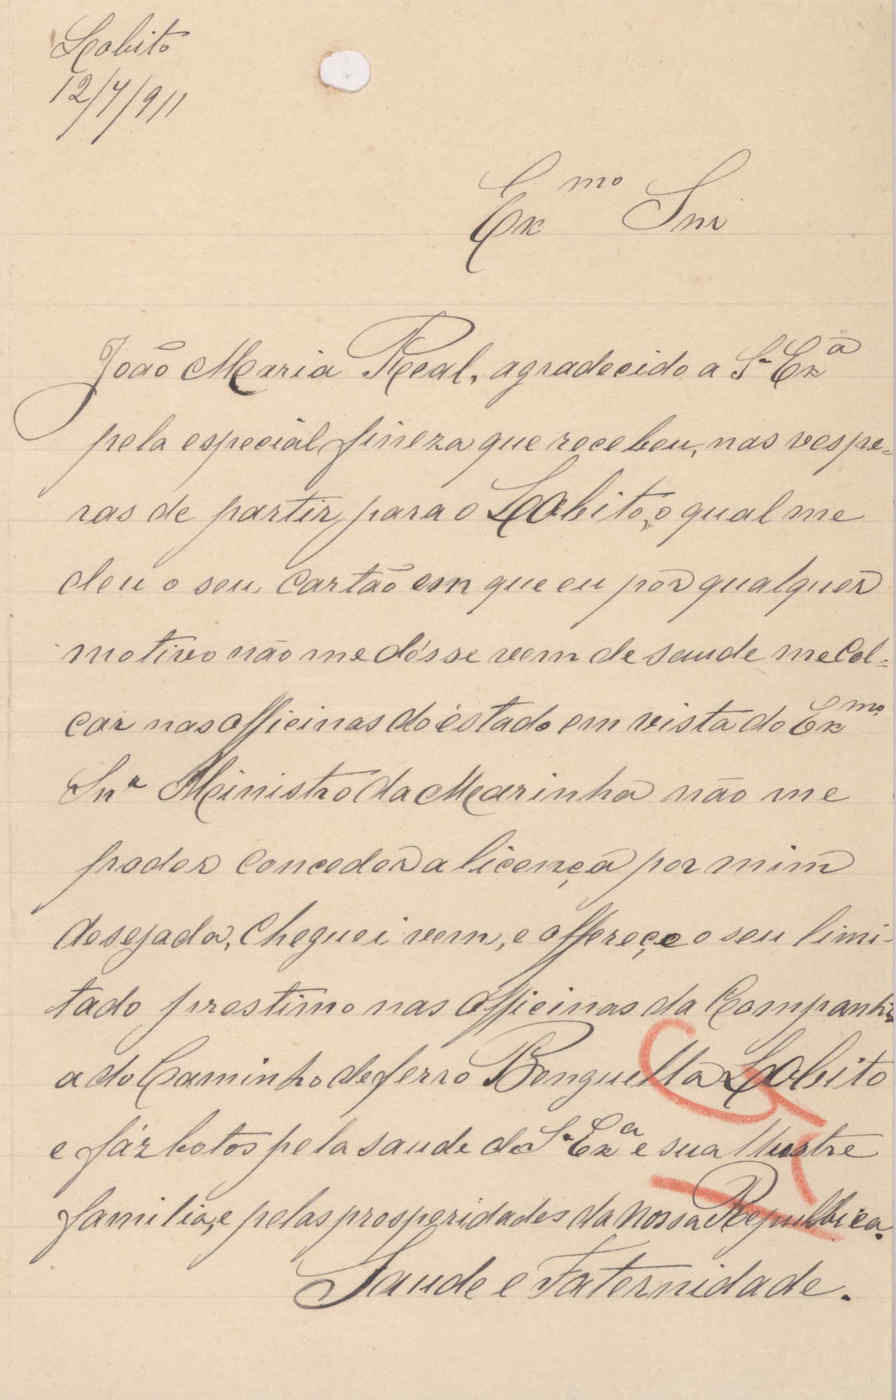 Lobito
12/7/911
Exmo Snr
João Maria Real, agradecido a Sa Exa
pela especial fineza que recebeu, nas vespe=
ras de partir para o Lobito, o qual me
deu o seu cartão em que eu por qualquer
motivo não me désse vem de saude me Col=
car nas officinas do éstado em vista do Exmo
Snr Ministro da Marinha não me
poder conceder a licença por mim
desejada, Cheguei vem, e offereçe o seu limi-
tado prestimo nas officinas da Companhi
a do Caminho de ferro Benguella Lobito
e fáz botos pela saude de Sa Exa e sua Ilustre
familia, e pelas prosperidades da nossa Republica.
Saude e Faternidade.